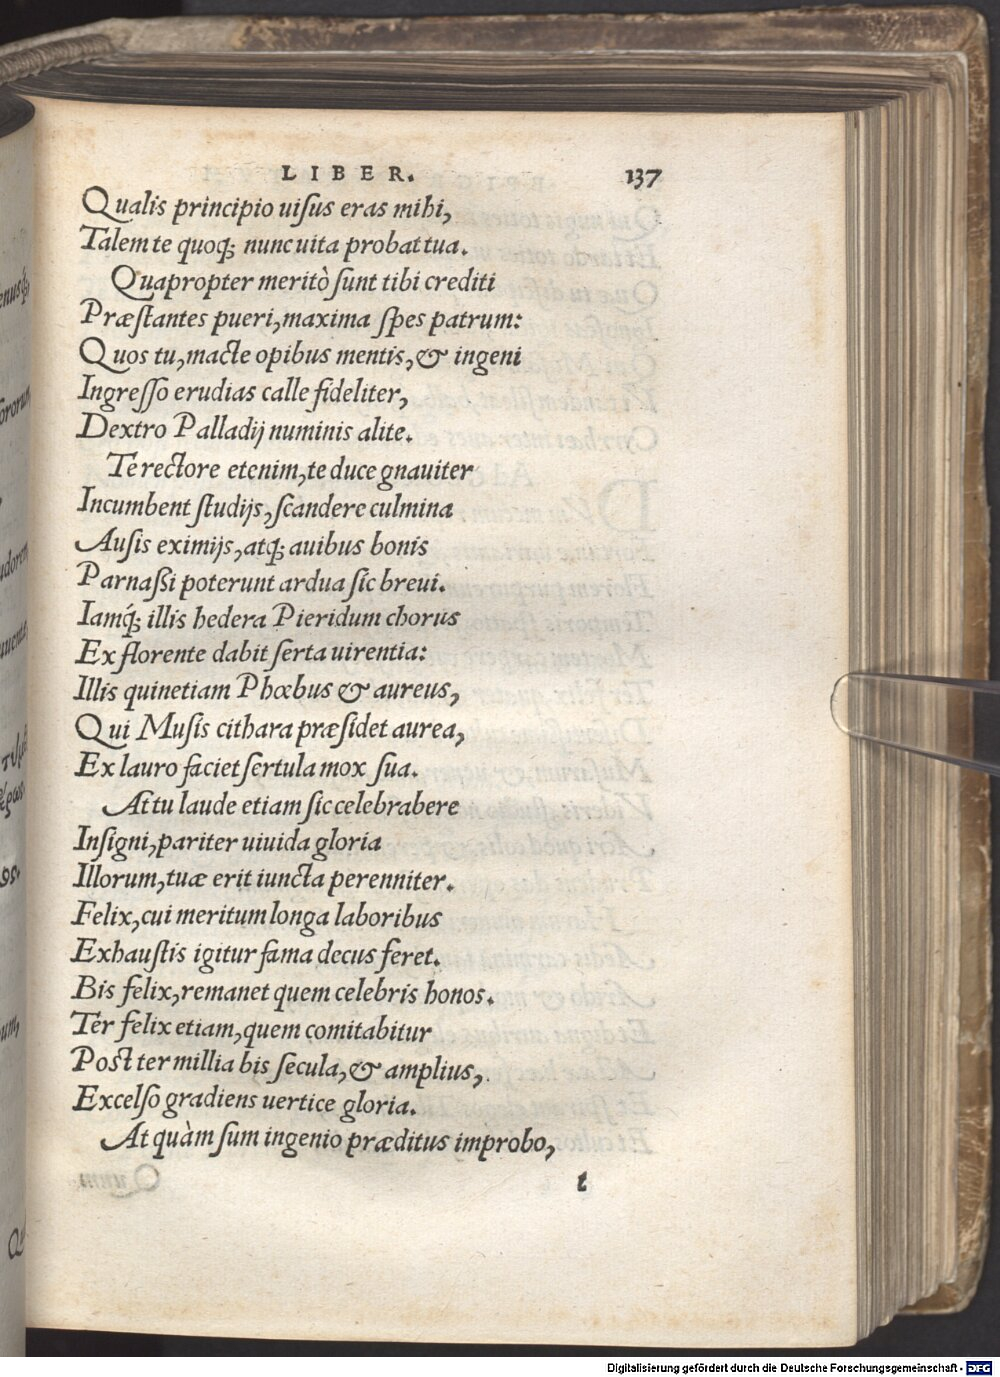 LIBER. 137
Qualis principio uiſus eras mihi,
Talem te quoq; nunc uita probat tua.
Quapropter meritò ſunt tibi crediti
Præſtantes pueri, maxima ſpes patrum:
Quos tu, macte opibus mentis, & ingeni
Ingreſſo erudias calle fideliter,
Dextro Palladij numinis alite.
Te rectore etenim, te duce gnauiter
Incumbent ſtudijs, ſcandere culmina
Auſis eximijs, atq; auibus bonis
Parnaßi poterunt ardua ſic breui.
Iamq́; illis hedera Pieridum chorus
Ex florente dabit ſerta uirentia:
Illis quinetiam Phœbus & aureus,
Qui Muſis cithara præſidet aurea,
Ex lauro faciet ſertula mox ſua.
At tu laude etiam ſic celebrabere
Inſigni, pariter uiuida gloria
Illorum, tuæ erit iuncta perenniter.
Felix, cui meritum longa laboribus
Exhauſtis igitur fama decus feret.
Bis felix, remanet quem celebris honos.
Ter felix etiam, quem comitabitur
Poſt ter millia bis ſecula, & amplius,
Excelſo gradiens uertice gloria.
At quàm ſum ingenio præditus improbo,
t
Digitalisierung gefördert durch die Deutsche Forschungsgemeinschaft - DFG